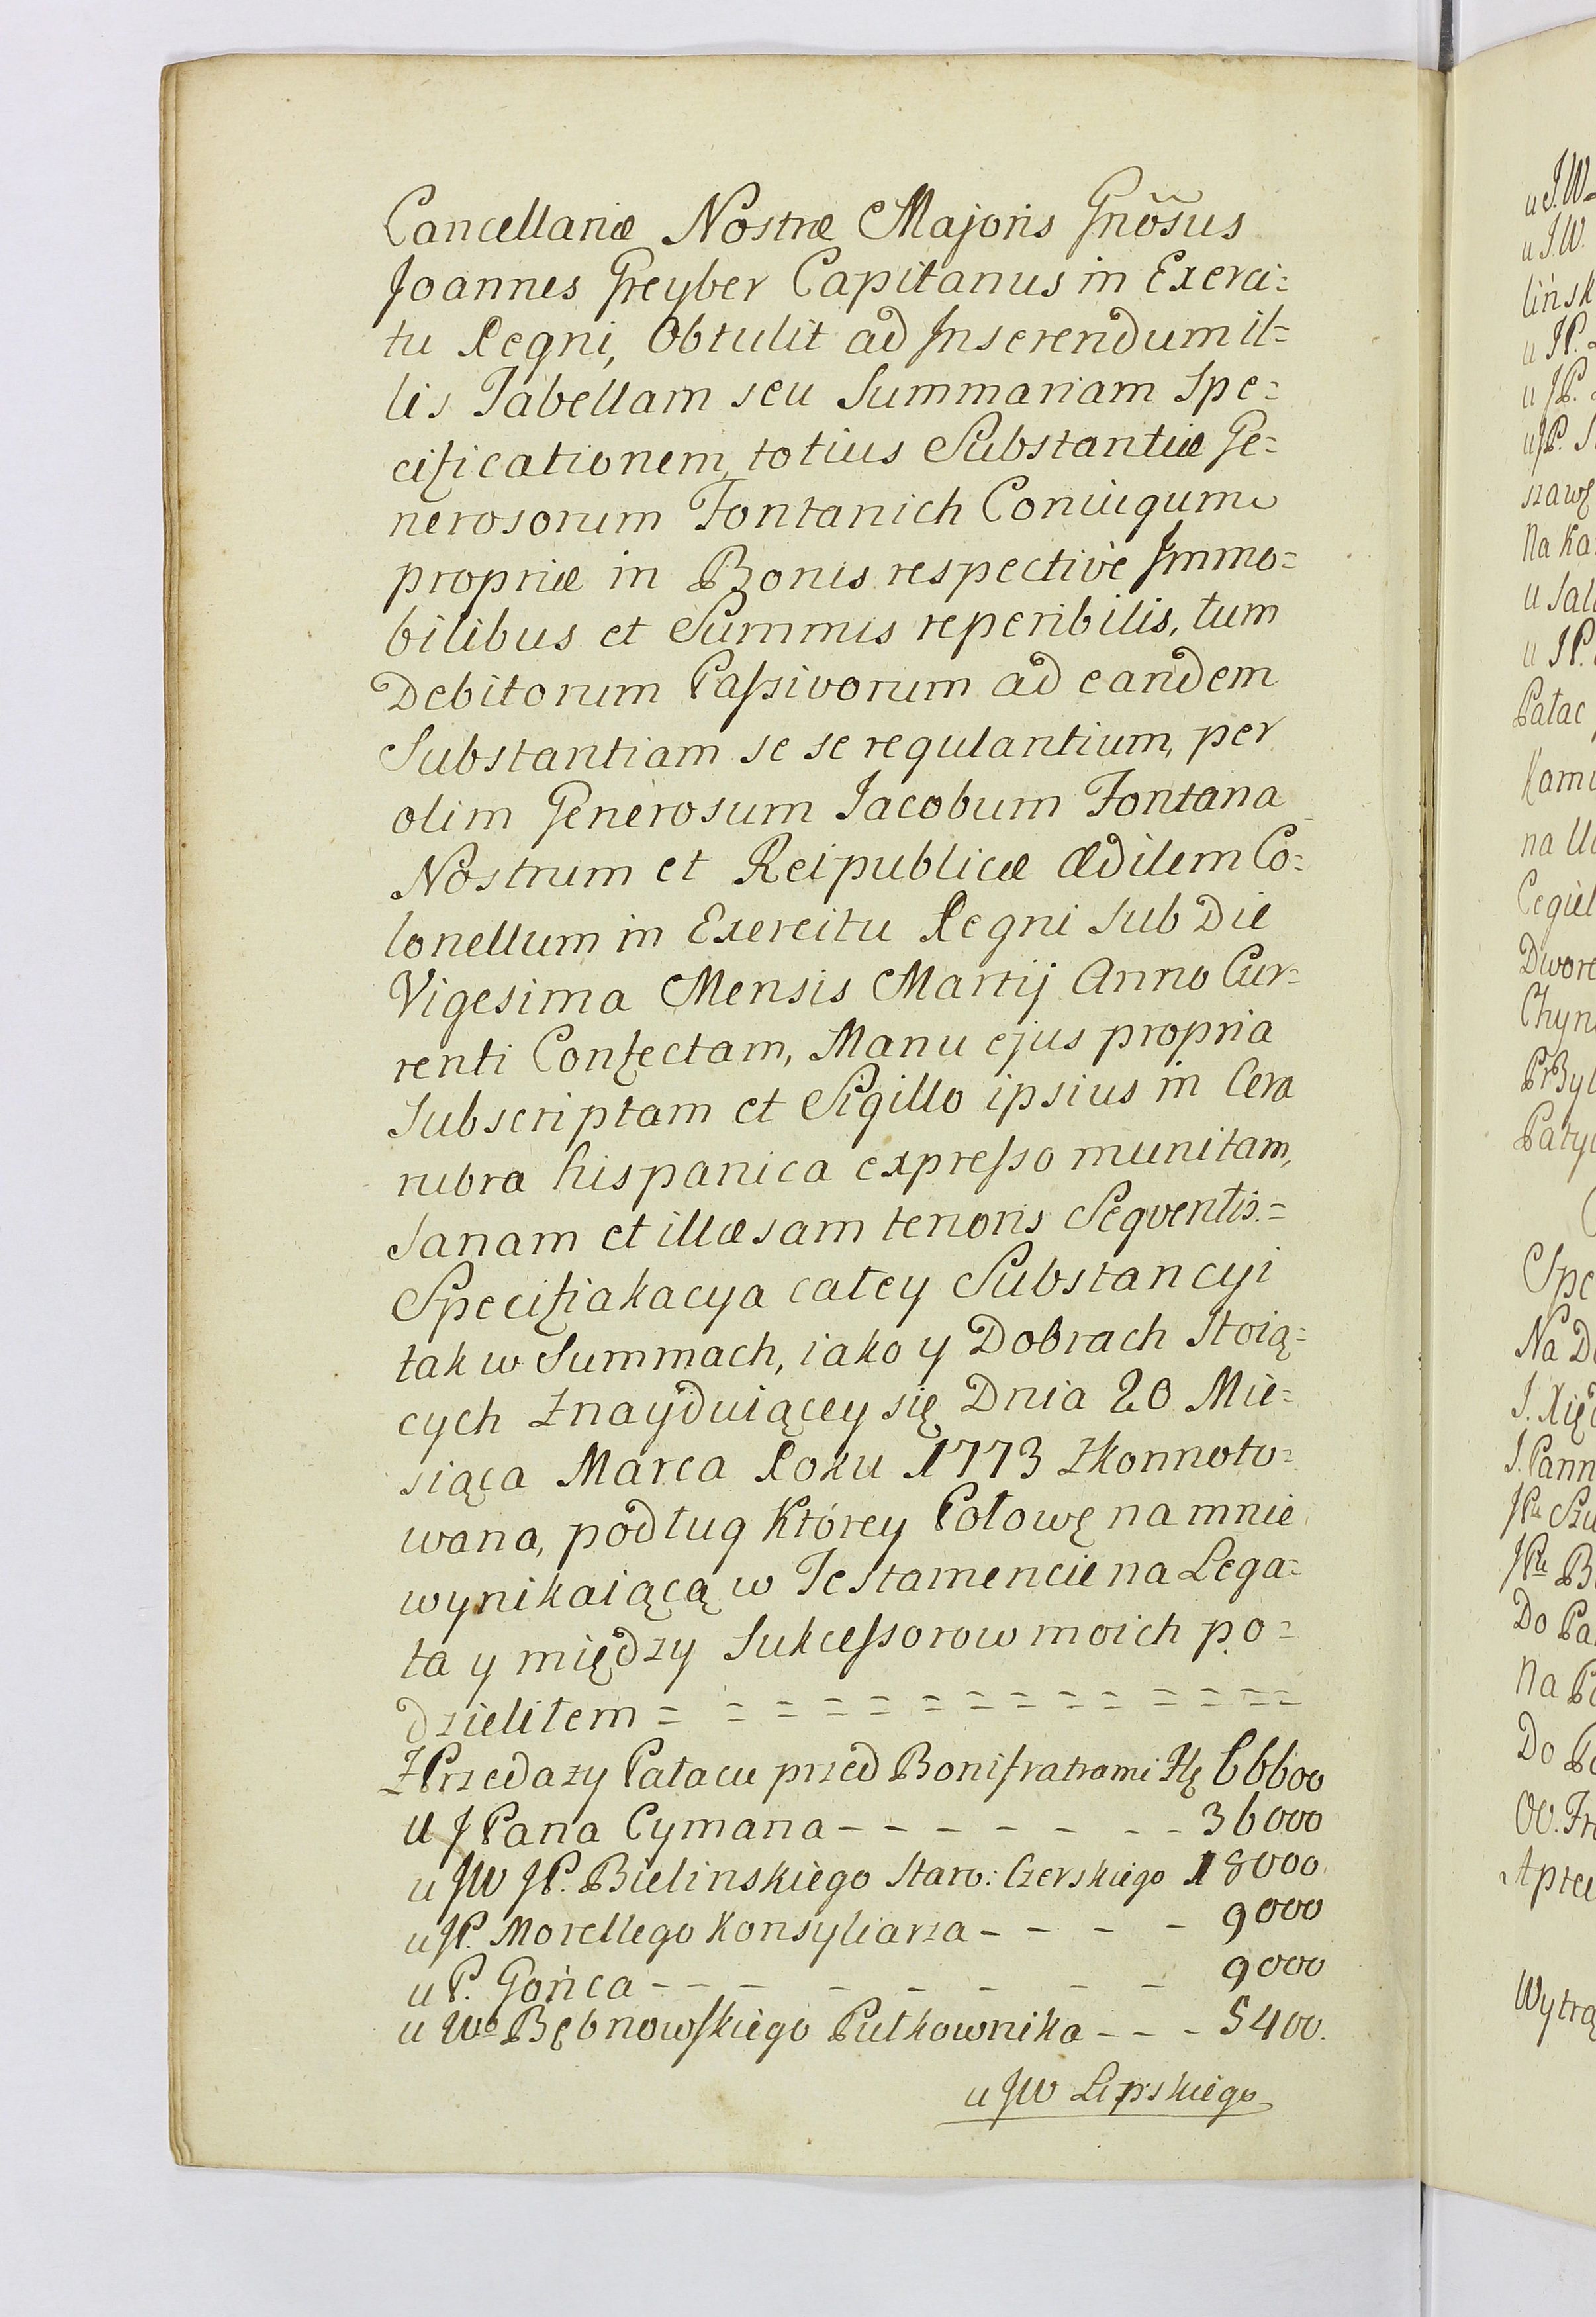 Cancellariæ Nostræ Majoris Gnõsus
Joannes Greyber Capitanus in Exerci=
tu Regni, Obtulit ad Inserendum il=
lis Tabellam seu Summariam Spe=
cificationem, totius Substantiæ Ge=
nerosorum Fontanich Coniugum
propriæ in Bonis respectivè Immo=
bilibus et Summis reperibilis, tum
Debitorum Paſsivorum ad eandem
Substantiam se se regulantium, per
olim Generosum Jacobum Fontana
Nostrum et Reipublicæ Ædilem Co=
lonellum in Exercitu Regni sub Die
Vigesima Mensis Martij Anno Cur=
renti Confectam, Manu ejus propria
Subscriptam et Sigillo ipsius in Cera
rubra hispanica expreſso munitam,
Sanam et illæsam tenoris Seqventis.=
Specifiakacya całey Substancyi
tak w Summach, iako y Dobrach Stoią=
cych Znayduiącey się Dnia 20 Mie=
siąca Marca Roku 1773 Zkonnoto=
wana, podług Którey Połowę na mnie
wynikaiącą w Testamencie na Lega=
ta y między Sukceſsorow moich po=
dzieliłem = = = = = = = = = = = = = =
Z Przedaży Pałacu przed Bonifratrami Złł 66600
U J Pana Cymana - - - - - - - - 36000
u JW JP. Bielinskiego Staro: Czerskiego 18000
u JP. Morellego Konsyliarza - - - - 9000
u P. Gońca - - - - - - - - 9000
u Wo Bębnowſkiego Pułkownika - - - 5400.
u JW Lipskiego
u J.W
u J.W.
lińsk
u JP.
u JP.
u JP. S
szawę
Na Ka
u Sal
u JP.
Pałac
Kami
na Ul
Cegiel
Dwore
Chyn
PrByl
Patyc
Spe
Na D
J. Xięd
J. Pann
JPu Szu
JPu B
Do Pa
Na Po
Do Po
OO. Fra
Aptec
Wytrą